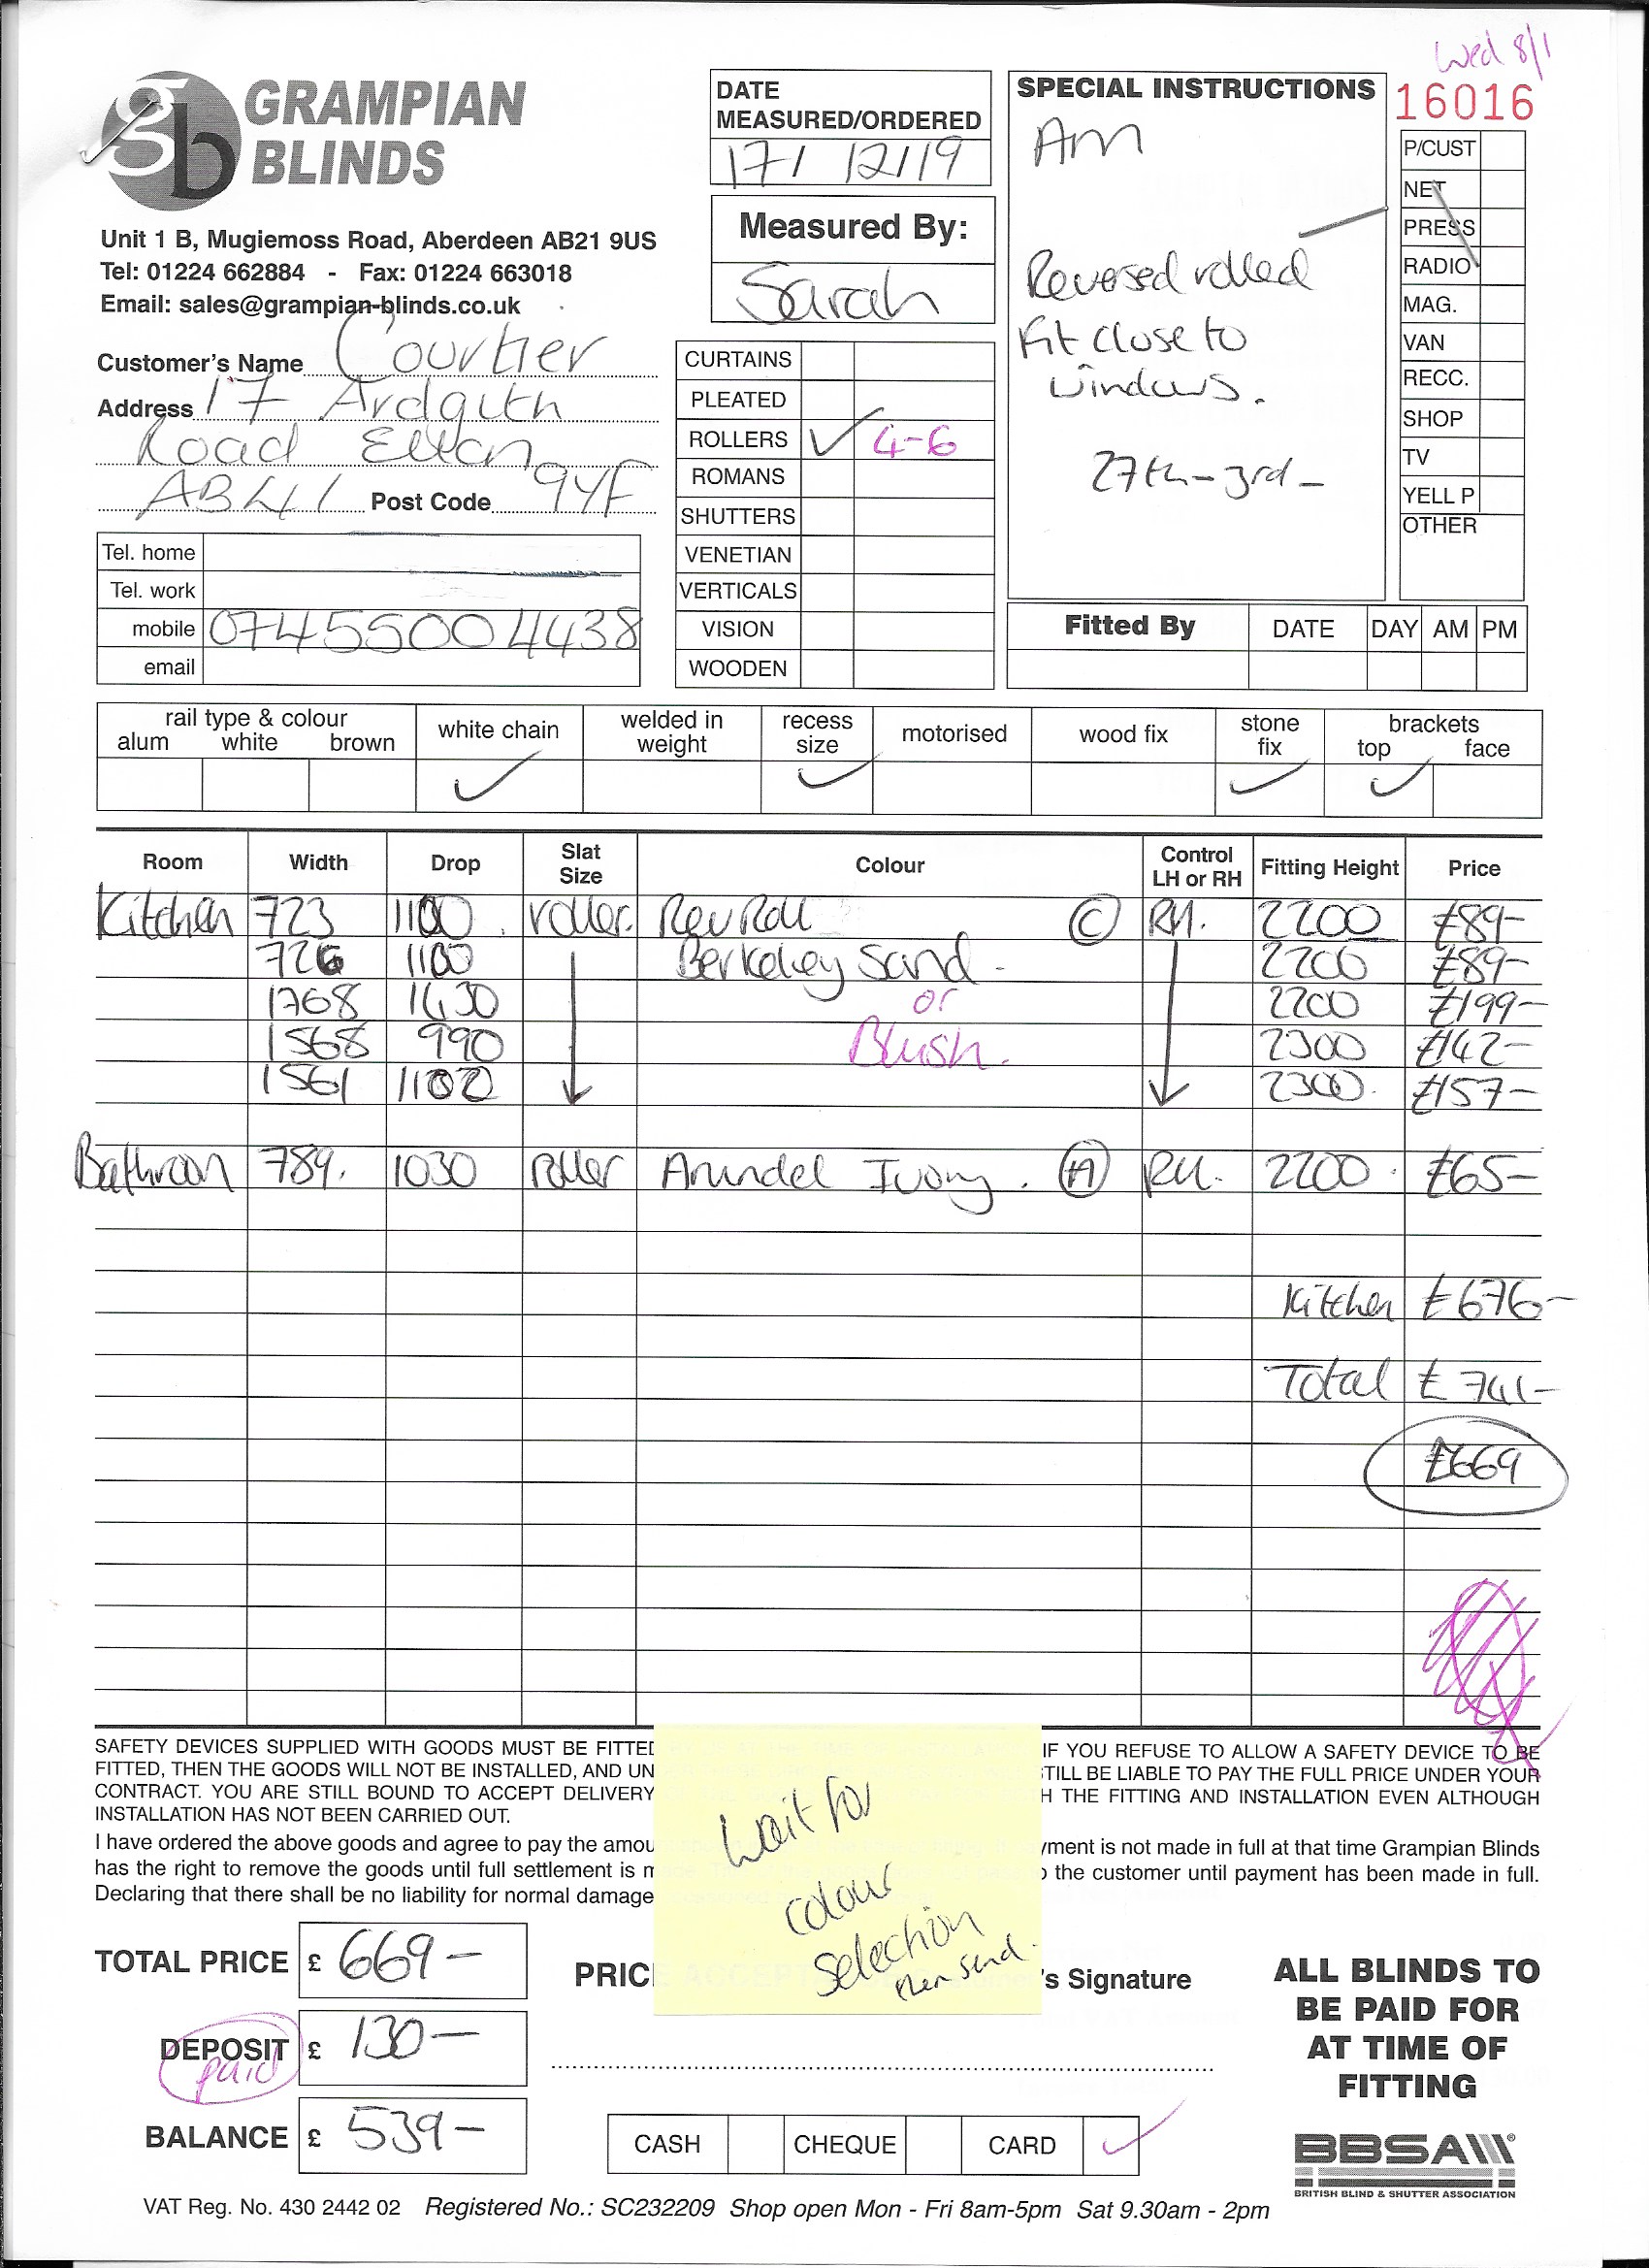 Wed 8/1
gb GRAMPIAN
BLINDS
Unit 1 B, Mugiemoss Road, Aberdeen AB21 9US
Tel: 01224 662884 - Fax: 01224 663018
Email: sales@grampian-blinds.co.uk
Customer's Name Courtier
Address 17
Road Ellon
AB41 Post Code 9YF
Tel. home
Tel. work
mobile 07455004438
email
DATE
MEASURED/ORDERED
17/12/19
Measured By:
Sarah
CURTAINS
PLEATED
ROLLERS ✓ 4-6
ROMANS
SHUTTERS
VENETIAN
VERTICALS
VISION
WOODEN
SPECIAL INSTRUCTIONS
Am
Reversed rolled
Fit close to
windows.
27th-3rd-
16016
P/CUST
NET
PRESS
RADIO
MAG.
VAN
RECC.
SHOP
TV
YELL P
OTHER
Fitted By DATE DAY AM PM
rail type & colour
alum white brown
white chain ✓
welded in
weight
recess
size ✓
motorised
wood fix
stone
fix ✓
brackets
top ✓ face
Room Width Drop Slat Size Colour Control LH or RH Fitting Height Price
Kitchen 723 1100 roller. Rev Roll © RH. 2200 £89-
726 1100 Berkeley Sand - 2200 £89-
1768 1430 or 2200 £199-
1568 990 Blush. 2300 £142-
1561 1102 2300. £157-
Bathroom 789. 1030 roller Arundel Ivory. Ⓐ RH. 2200 £65-
Kitchen £676-
Total £741-
£669
SAFETY DEVICES SUPPLIED WITH GOODS MUST BE FITTED IF YOU REFUSE TO ALLOW A SAFETY DEVICE TO BE
FITTED, THEN THE GOODS WILL NOT BE INSTALLED, AND UN STILL BE LIABLE TO PAY THE FULL PRICE UNDER YOUR
CONTRACT. YOU ARE STILL BOUND TO ACCEPT DELIVERY H THE FITTING AND INSTALLATION EVEN ALTHOUGH
INSTALLATION HAS NOT BEEN CARRIED OUT.
I have ordered the above goods and agree to pay the amou yment is not made in full at that time Grampian Blinds
has the right to remove the goods until full settlement is m the customer until payment has been made in full.
Declaring that there shall be no liability for normal damage
wait for
colour
selection
then send.
TOTAL PRICE £ 669-
DEPOSIT £ 130-
paid
BALANCE £ 539-
PRIC 's Signature
CASH CHEQUE CARD ✓
ALL BLINDS TO
BE PAID FOR
AT TIME OF
FITTING
BBSA
BRITISH BLIND & SHUTTER ASSOCIATION
VAT Reg. No. 430 2442 02 Registered No.: SC232209 Shop open Mon - Fri 8am-5pm Sat 9.30am - 2pm